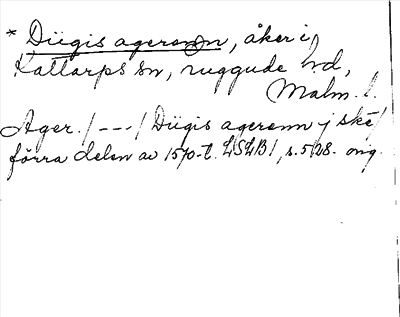 * Dügis agerenn, åker i
Kattarps sn, Luggude hd,
Malm. l.
Ager. / --- / Dügis agerenn j ské/
förra delen av 1570-t. LSLB1, s. 528. orig.